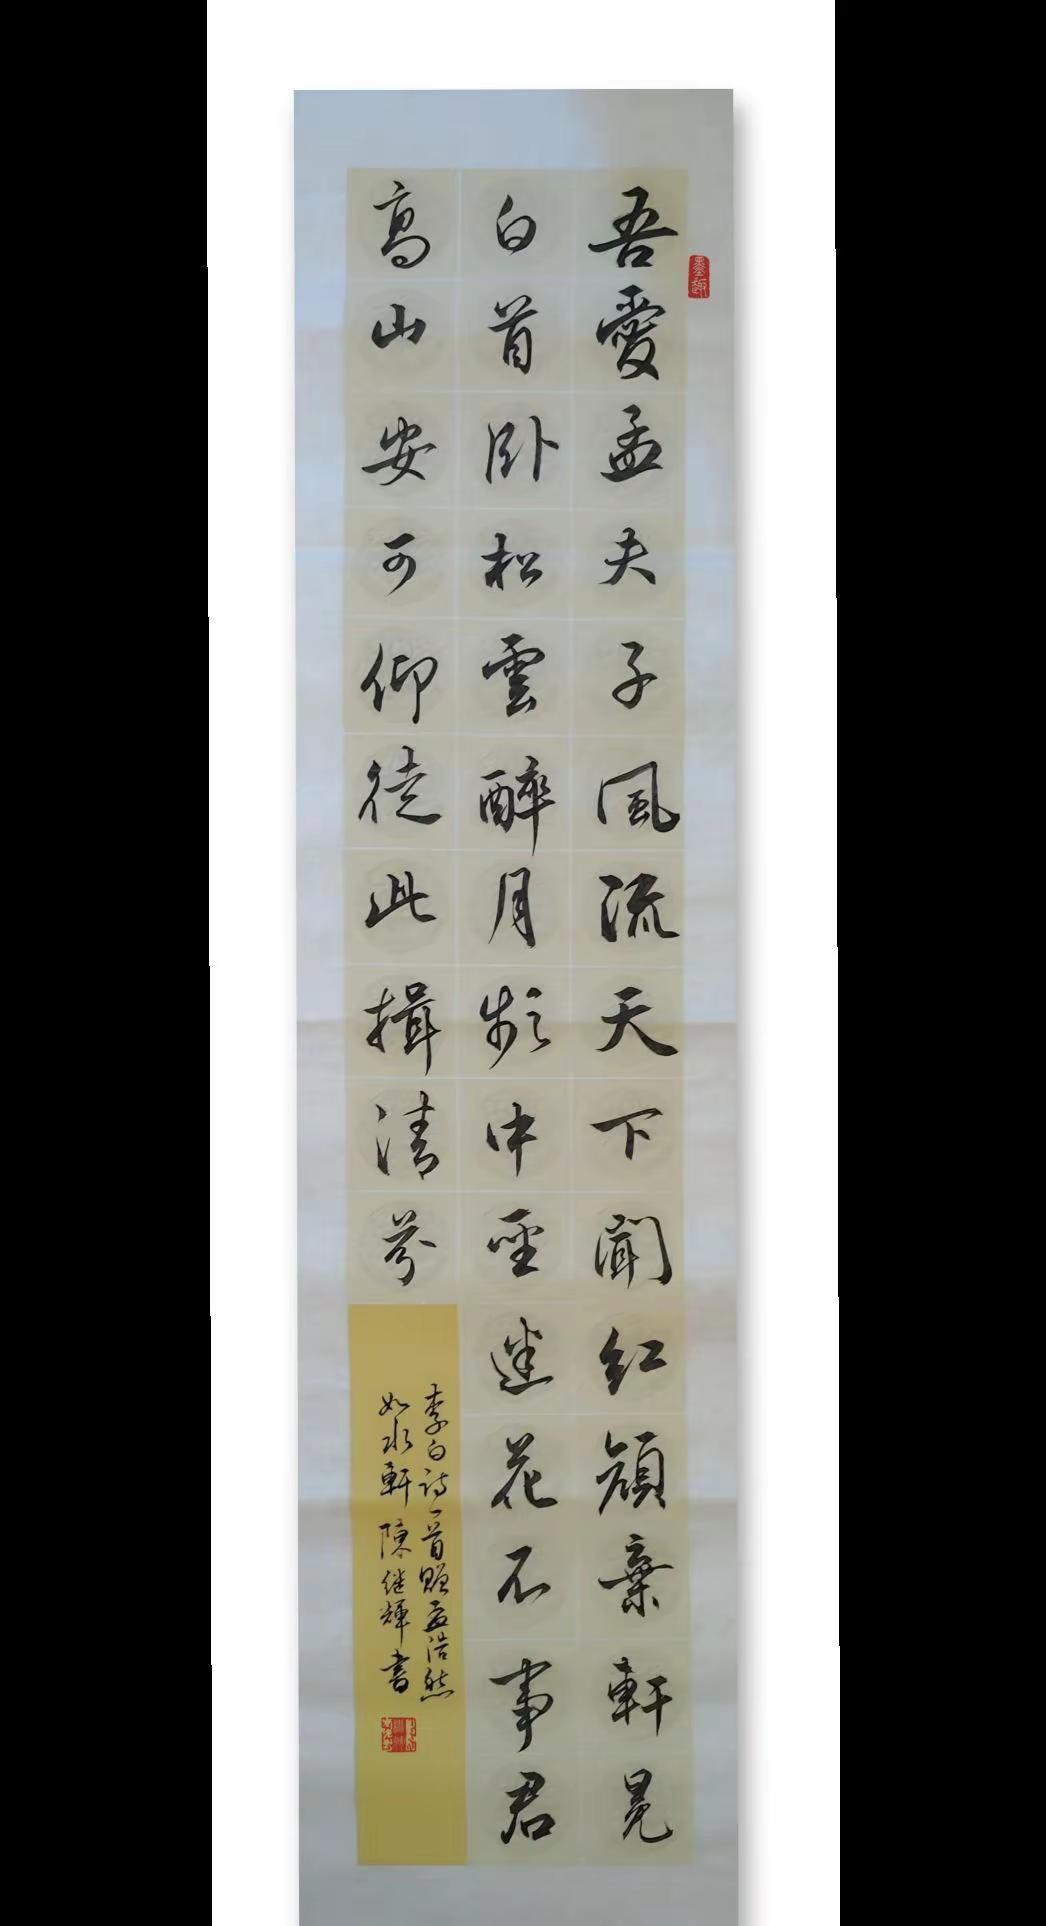 吾愛孟夫子風流天下聞紅顔棄軒冕
白首臥松雲醉月頻中聖迷花不事君
高山安可仰徒此揖清芬
李白詩一首贈孟浩然
如水軒陳继輝書
墨趣